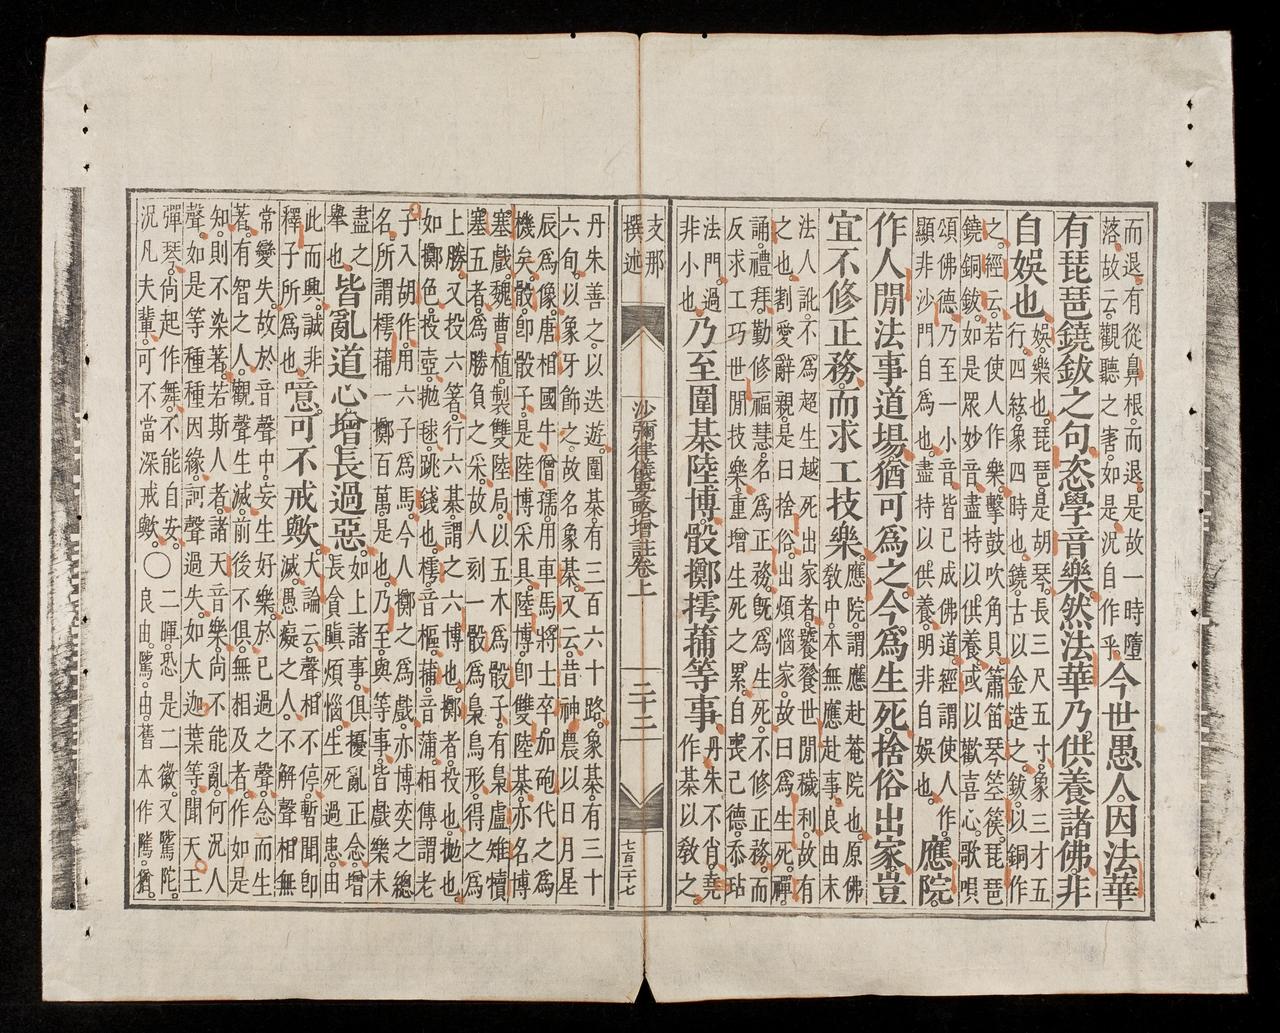 而退。有從鼻根而退。是故一時墮
落。故云。觀聽之害。如是。況自作乎。今世愚人因法華
有琵琶鐃鈸之句恣學音樂然法華乃供養諸佛非
自娛也娛。樂也。琵琶。是胡琴。長三尺五寸。象三才五
行。四絃象四時也。鐃。古以金造之。鈸。以銅作
之。經云。若使人作樂。擊鼓吹角貝。簫笛琴箜篌。琵琶
鐃銅鈸。如是眾妙音。盡持以供養。或以歡喜心。歌唄
頌佛德。乃至一小音。皆已成佛道。經謂使人作。
顯非沙門自為也。盡持以供養。明非自娛也。應院
作人閒法事道場猶可為之今為生死捨俗出家豈
宜不修正務而求工技樂應院。謂應赴菴院也。原佛
教中。本無應赴事。良由末
法人訛。不為超生越死出家者。饕餮世閒穢利。故有
之也。割愛辭親。是曰捨俗。出煩惱家。故曰為生死。禪
誦。禮拜。勤修福慧。名為正務。既為生死。不修正務。而
反求工巧世閒技樂。重增生死之累。自喪己德。忝玷
法門。過
非小也。乃至圍棊陸博骰擲摴蒱等事丹朱不肖。堯
作棊以教之。
支那
撰述
沙彌律儀要略增註卷上
二十二
七百二十七
丹朱善之。以迭遊。圍棊。有三百六十路。象棊。有三十
六句。以象牙飾之。故名象棊。又云。昔神農以日月星
辰為像。唐相國牛僧孺。用車馬將士卒。加砲代之為
機矣。骰。卽骰子。是陸博采具。陸博。卽雙陸棊。亦名博
塞戲。魏曹植。製雙陸局。以五木為骰子。有梟盧雉犢
塞五者。為勝負之采。故人刻一骰為梟鳥形。得之為
上勝。又投六箸。行六棊。謂之六博也。擲者。投也。拋也。
如擲色。投壺。拋毬。跳錢也。摴。音樞。蒱。音蒲。相傳謂老
子入胡作。用六子為馬。今人擲之為戲。亦博奕之總
名。所謂摴蒱一擲百萬。是也。乃至。與等事。皆戲樂未
盡之
舉也。皆亂道心增長過惡如上諸事。俱擾亂正念。增
長貪瞋煩惱。生死過患。由
此而興。誠非
釋子所為也。噫可不戒歟大論云。聲相不停。暫聞卽
滅。愚癡之人。不解聲相無
常變失。故於音聲中。妄生好樂。於已過之聲。念而生
著。有智之人。觀聲生滅。前後不俱。無相及者。作如是
知。則不染著。若斯人者。諸天音樂。尚不能亂。何況人
聲。如是等種種因緣。訶聲過失。如大迦葉等。聞天王
彈琴。尚起作舞。不能自安。〇二暉。恐是二徽。又隲陀。
況凡夫輩。可不當深戒歟。良由。隲。由。舊本作隲。猶。